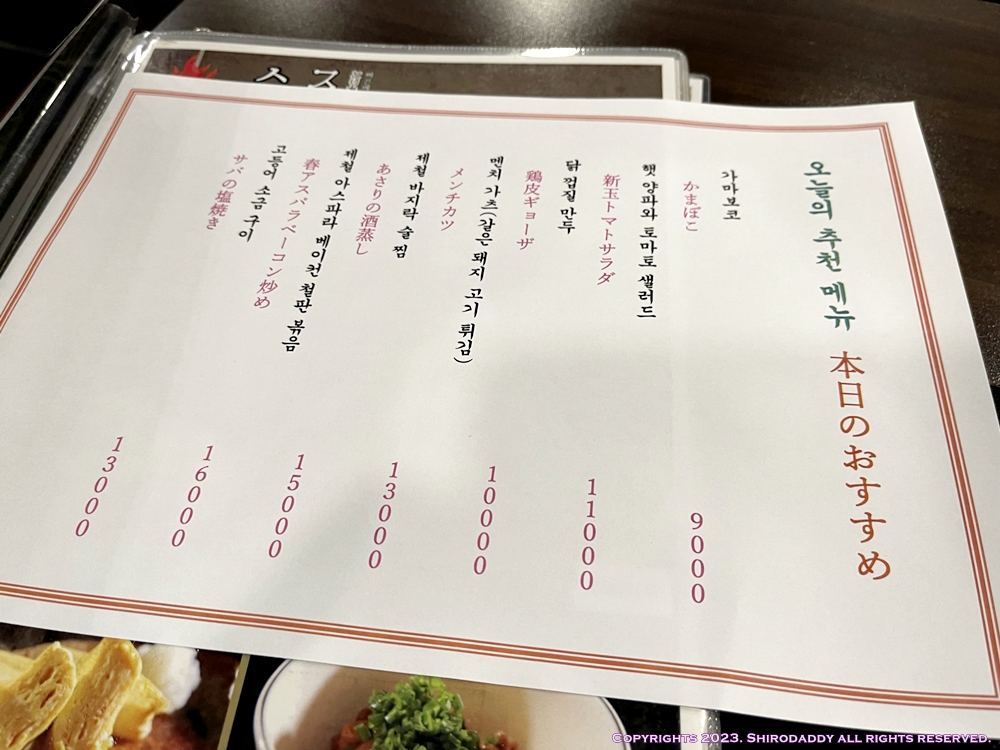 오늘의 추천 메뉴 本日のおすすめ
가마보코
かまぼこ
9000
햇 양파와 토마토 샐러드
新玉トマトサラダ
11000
닭 껍질 만두
鶏皮ギョーザ
10000
멘치 가츠(갈은 돼지 고기 튀김)
メンチカツ
13000
제철 바지락 술 찜
あさりの酒蒸し
15000
제철 아스파라 베이컨 철판 볶음
春アスパラベーコン炒め
16000
고등어 소금 구이
サバの塩焼き
13000
Copyrights 2023. Shirodaddy all rights reserved.